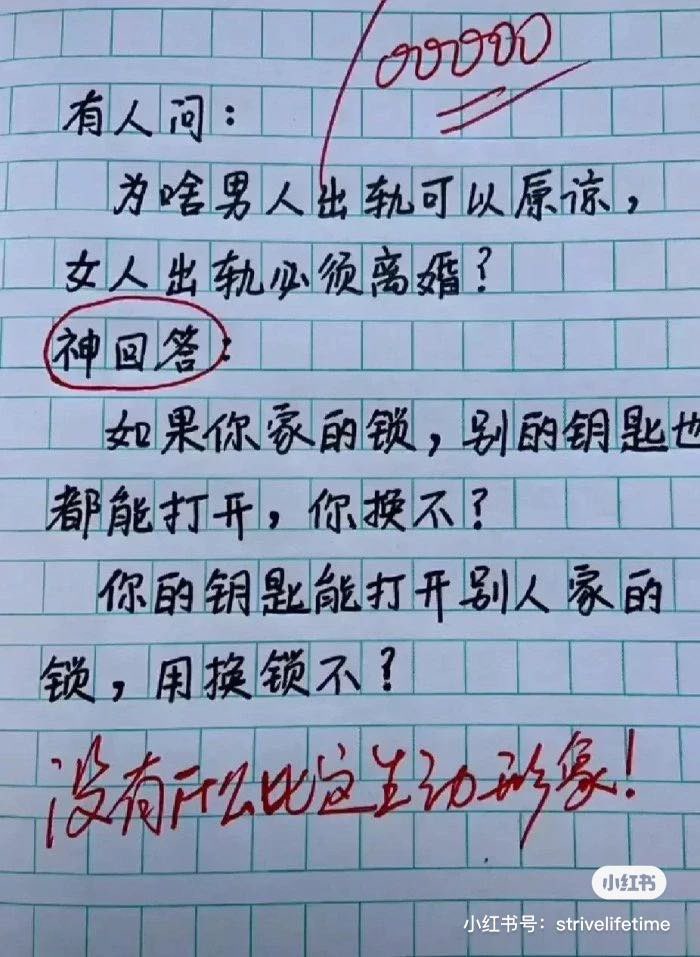 有人问：
为啥男人出轨可以原谅，
女人出轨必须离婚？
神回答：
如果你家的锁，别的钥匙也
都能打开，你换不？
你的钥匙能打开别人家的
锁，用换锁不？
没有什么比这生动形象！
小红书
小红书号：strivelifetime